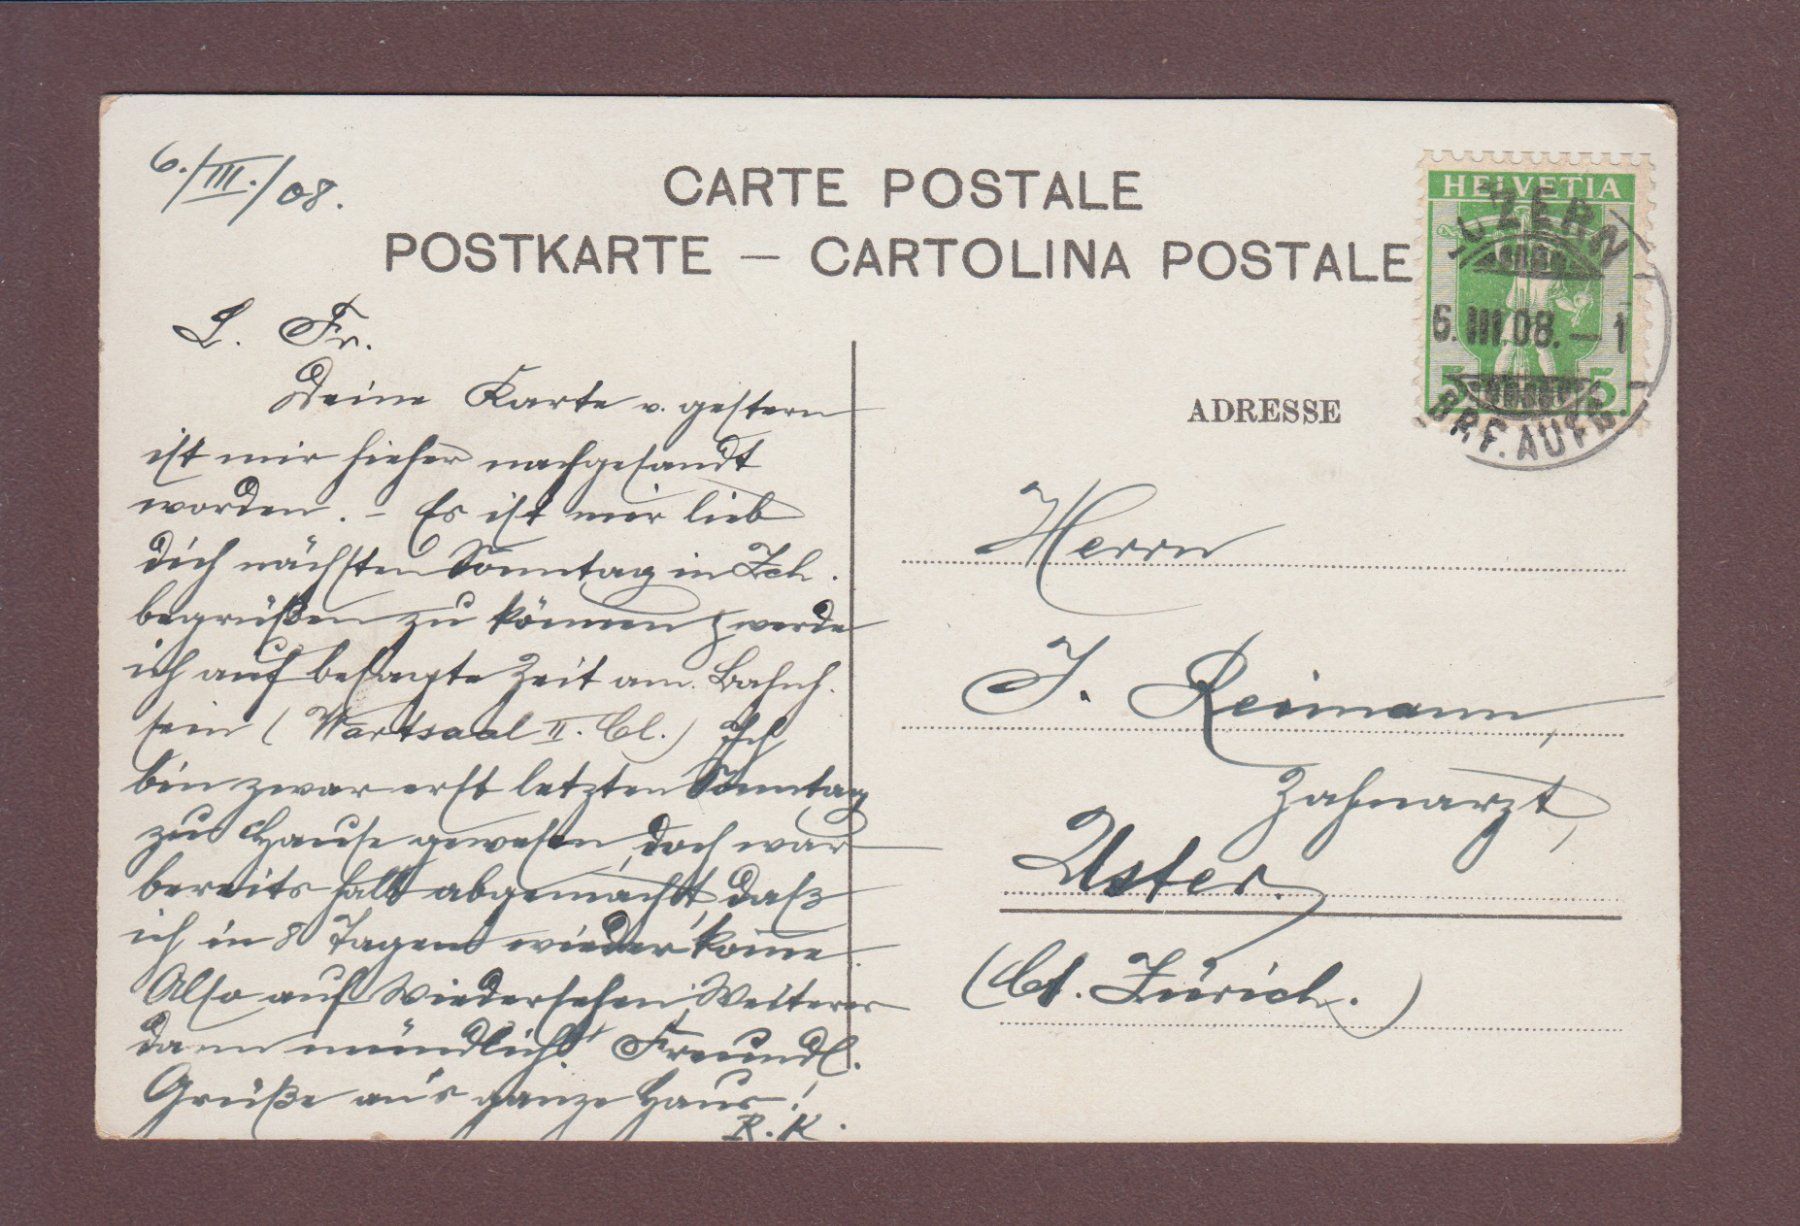 6./III./08.
CARTE POSTALE
POSTKARTE — CARTOLINA POSTALE
HELVETIA
LUZERN
6.III.08.—1
BRF. AUFG.
5 5
L. Fr.
Deine Karte v. gestern
ist mir hieher nachgesandt
worden. – Es ist mir lieb
dich nächsten Sonntag in Zch.
begrüßen zu können & werde
ich auf besagte Zeit am Bahnh.
sein (Wartsaal II. Cl.) Ich
bin zwar erst letzten Sonntag
zu Hause gewesen, doch war
bereits halb abgemacht, daß
ich in 8 Tagen wieder kom̄e.
Also auf Wiedersehen; Weiteres
dann mündlich! Freundl.
Grüße an's ganze Haus!
R. K.
ADRESSE
Herrn
J. Reimann,
Zahnarzt,
Uster.
(Ct. Zürich.)